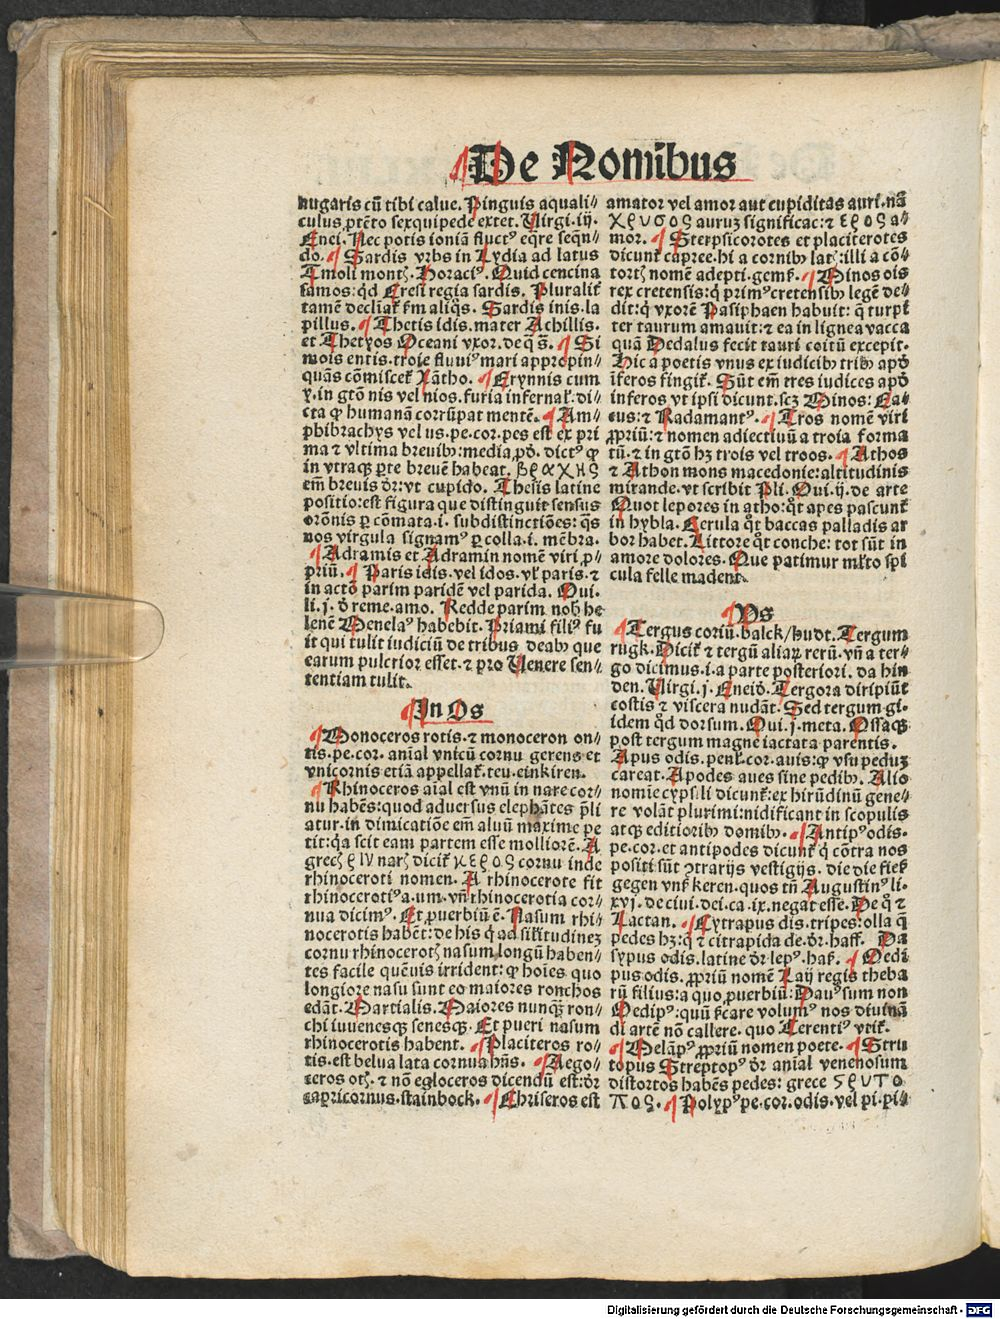 De Nominibus
nugaris cū tibi calue. Pinguis aquali⸗
culus ꝓtēto sexquipede extet. Virgi. iij.
Enei. Nec potis ioniā fluctꝰ eq̄re seqn̄⸗
do. ¶ Sardis vrbs in Lydia ad latus
Tmoli montꝭ. Horaciꝰ. Quid cencina
samos: qd Cresi regia sardis. Pluralit̄
tamē declīat̄ ẜm aliq̄s. Sardis inis. la
pillus. ¶ Thetis idis. mater Achillis.
et Thetyos Oceani vxor. de q̄ s̄. ¶ Si
mois entis. troie fluuiꝰ mari appropin⸗
quās cōmiscet̄ Xātho. ¶ Erynnis cum
y. in gtō nis vel nios. furia infernal̄. di⸗
cta ꝙ humanā corrūpat mentē. ¶ Am⸗
phibrachys vel us. pe. cor. pes est ex pri
ma ⁊ vltima breuibꝰ: media ꝓd. dictꝰ ꝙ
in vtraqꝫ ꝑte breuē habeat. βραχης
em̄ breuis dr̄: vt cupido. Thesis latine
positio: est figura que distinguit sensus
orōnis ꝑ cōmata. i. subdistinctiōes: q̄s
nos virgula signamꝰ ꝑ colla. i. mēbra.
¶ Adramis et Adramin nomē viri ꝓ⸗
priū. ¶ Paris idis. vel idos. vl̄ paris. ⁊
in actō parim paridē vel parida. Oui.
li. j. d̄ reme. amo. Redde parim nob he
lenē Menelaꝰ habebit. Priami filiꝰ fu
it qui tulit iudiciū de tribus deabꝰ que
earum pulcrior esset. ⁊ pro Venere sen⸗
tentiam tulit.
¶ In Os
¶ Monoceros rotis. ⁊ monoceron on⸗
tis. pe. cor. anīal vnicū cornu gerens et
vnicornis etiā appellat̄. teu. einkiren.
¶ Rhinoceros aial est vnū in nare cor⸗
nu habēs: quod aduersus elephātes p̄li
atur. in dimicatiōe em̄ aluū maxime pe
tit: qa scit eam partem esse molliorē. A
grecꝭ ριν narꝭ dicit̄ κερος cornu inde
rhinoceroti nomen. A rhinocerote fit
rhinocerotiꝰ a. um. vn̄ rhinocerotia cor⸗
nua dicimꝰ. Et ꝓuerbiū ē. Nasum rhi⸗
nocerotis habēt: de his q̄ ad sil̄itudinez
cornu rhinocerotꝭ nasum longū haben⸗
tes facile quēuis irrident: ꝙ hoies quo
longiore nasu sunt eo maiores ronchos
edāt. Martialis. Maiores nunqꝫ ron⸗
chi iuuenesqꝫ senesqꝫ. Et pueri nasum
rhinocerotis habent. ¶ Placiteros ro⸗
tis. est belua lata cornua hn̄s. ¶ Aego⸗
ceros otꝭ. ⁊ nō egloceros dicendū est: dr̄
capricornus. stainbock. ¶ Chriseros est
amator vel amor aut cupiditas auri. nā
χρυσος auruz significac: ⁊ ερος a⸗
mor. ¶ Sterpsicorotes et placiterotes
dicunt̄ capree. hi a cornibꝰ latꝭ: illi a cō⸗
tortꝭ nomē adepti. gemß. ¶ Minos ois
rex cretensis: q̄ primꝰ cretensibꝰ legē de⸗
dit: q̄ vxorē Pasiphaen habuit: q̄ turpi
ter taurum amauit: ⁊ ea in lignea vacca
quā Dedalus fecit tauri coitū excepit.
Hic a poetis vnus ex iudicibꝰ tribꝰ apd
īferos fingit̄. Sūt em̄ tres iudices apd
inferos vt ipsi dicunt. scꝫ Minos: Ea⸗
cus: ⁊ Radamantꝰ. ¶ Tros nomē viri
ꝓpriū: ⁊ nomen adiectiuū a troia forma
tū. ⁊ in gtō hꝫ trois vel troos. ¶ Athos
⁊ Athon mons macedonie: altitudinis
mirande. vt scribit Pli. Oui. ij. de arte
Quot lepores in atho: qt̄ apes pascunt̄
in hybla. Cerula qt̄ baccas palladis ar
bor habet. Littore qt̄ conche: tot sūt in
amore dolores. Que patimur ml̄to spi
cula felle madent.
¶ Vs
¶ Tergus coriū. balck/hudt. Tergum
rugk. Dicit̄ ⁊ tergū aliaꝝ rerū. vn̄ a ter⸗
go dicimus. i. a parte posteriori. da hin
den. Virgi. j. Eneid. Tergora diripiūt
costis ⁊ viscera nudāt. Sed tergum gi.
idem qd dorsum. Oui. j. meta. Ossaqꝫ
post tergum magne iactata parentis.
Apus odis. penl̄. cor. auis: ꝙ vsu peduz
careat. Apodes aues sine pedibꝰ. Alio
nomie cypseli dicunt̄: ex hirūdinū gene⸗
re volāt plurimi: nidificant in scopulis
atqꝫ editioribꝰ domibꝰ. ¶ Antipꝰ odis.
pe. cor. et antipodes dicunt̄ q̄ cōtra nos
positi sūt ꝯtrarijs vestigijs. die die fieß
gegen vnß keren. quos tn̄ Augustinꝰ li.
xvj. de ciui. dei. ca. ix. negat esse. De q̄ ⁊
Lactan. ¶ Cytrapus dis. tripes: olla q̄
pedes hꝫ: q̄ ⁊ citrapida de. dr̄. haff. Da
sypus odis. latine dr̄ lepꝰ. haß. ¶ Oedi
pus odis. ꝓpriū nomē Laij regis theba
rū filius: a quo ꝓuerbiū: Dauꝰ sum non
Oedipꝰ: quū ſcare volumꝰ nos diuinā
di artē nō callere. quo Terentiꝰ vtit̄.
¶ Melāpꝰ ꝓpriū nomen poete. ¶ Stru
topus Streptopꝰ dr̄ anial venenosum
distortos habēs pedes: grece ϛρυτο
πος. ¶ Polypꝰ pe. cor. odis. vel pi. pi⸗
Digitalisierung gefördert durch die Deutsche Forschungsgemeinschaft - DFG